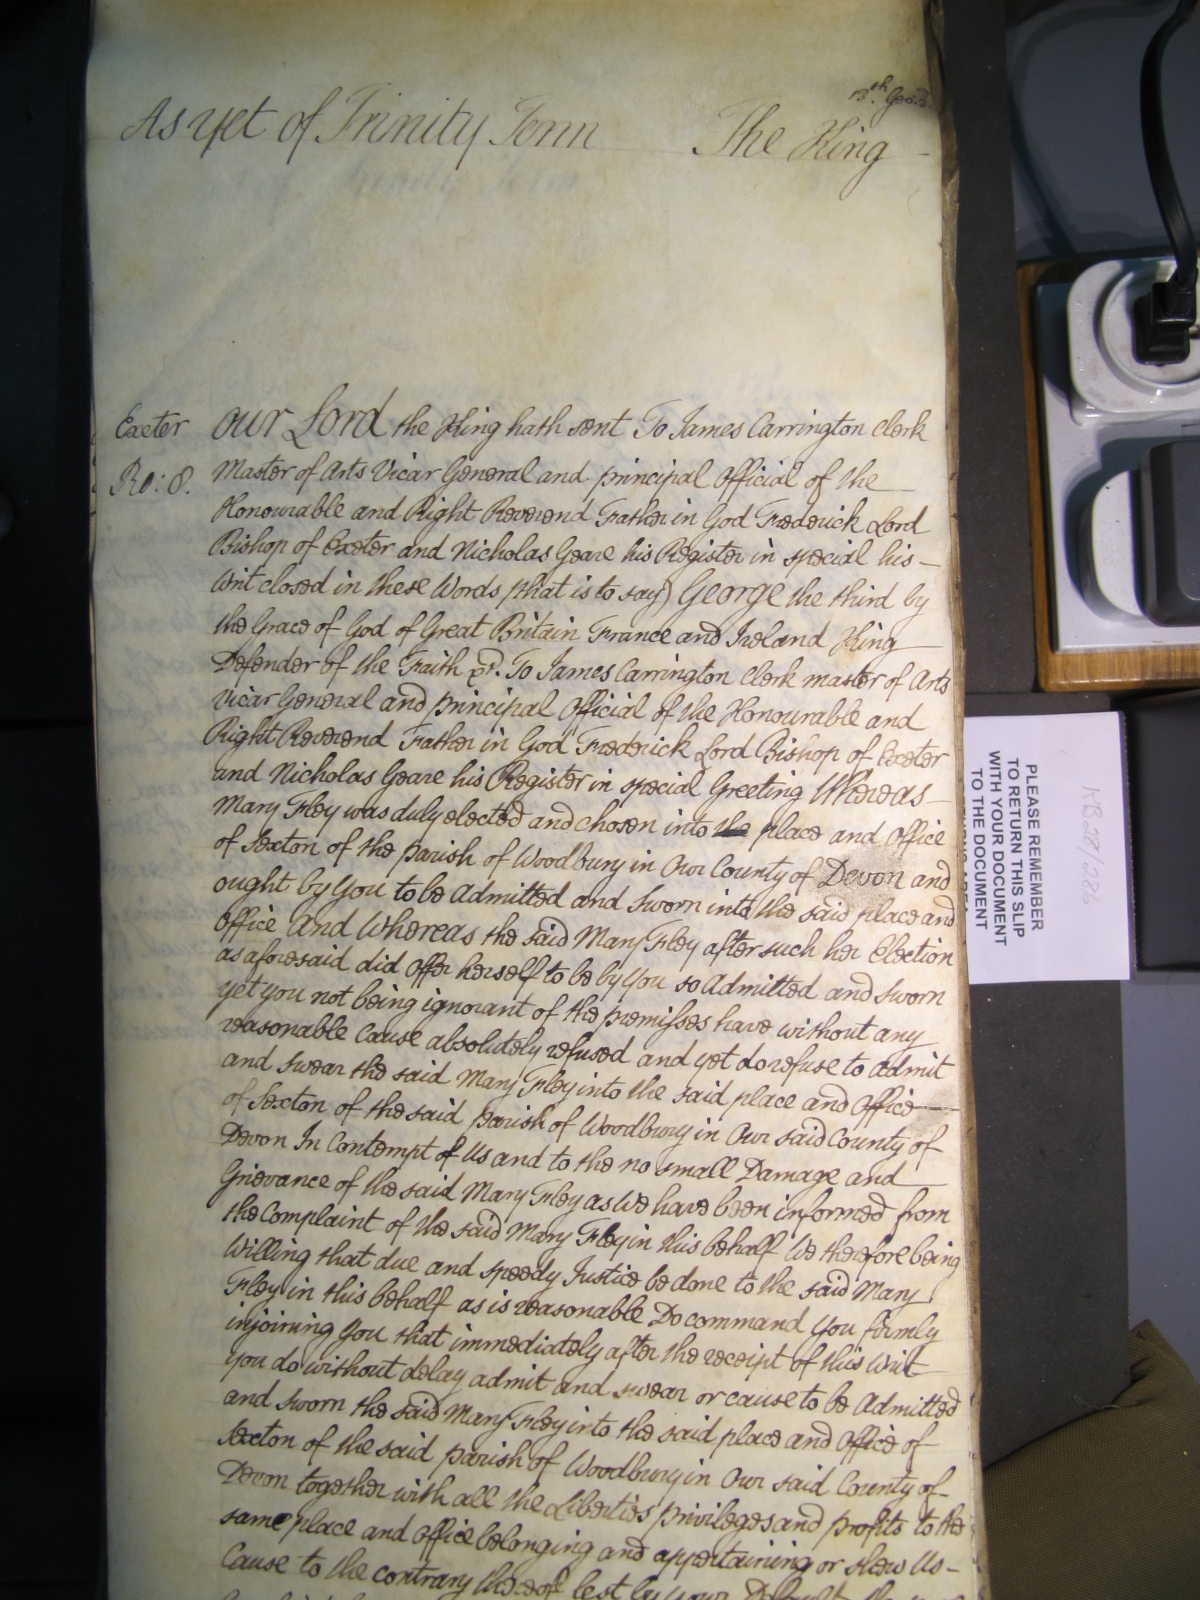 13th. Geo. 3.
As yet of Trinity Term The King
Exeter Our Lord the King hath sent To James Carrington Clerk
Ro: 8. Master of Arts Vicar General and principal Official of the
Honourable and Right Reverend Father in God Frederick Lord
Bishop of Exeter and Nicholas Geare his Register in special his
Writ closed in these Words (that is to say) George the third by
the Grace of God of Great Britain France and Ireland King
Defender of the Faith &c. To James Carrington Clerk master of Arts
Vicar General and principal Official of the Honourable and
Right Reverend Father in God Frederick Lord Bishop of Exeter
and Nicholas Geare his Register in special Greeting Whereas
Mary Fley was duly elected and chosen into the place and Office
of Sexton of the Parish of Woodbury in Our County of Devon and
ought by You to be Admitted and Sworn into the said place and
Office And Whereas the said Mary Fley after such her Election
as aforesaid did Offer herself to be by You so Admitted and Sworn
yet you not being ignorant of the premisses have without any
reasonable Cause absolutely refused and yet do refuse to Admit
and swear the said Mary Fley into the said place and Office
of Sexton of the said Parish of Woodbury in Our said County of
Devon In Contempt of Us and to the no small Damage and
Grievance of the said Mary Fley as We have been informed from
the Complaint of the said Mary Fley in this behalf We therefore being
Willing that due and speedy Justice be done to the said Mary
Fley in this behalf as is reasonable Do command You firmly
injoining You that immediately after the receipt of this Writ
you do without delay admit and swear or cause to be Admitted
and Sworn the said Mary Fley into the said place and Office of
Sexton of the said Parish of Woodbury in Our said County of
Devon together with all the Liberties privileges and profits to the
same place and Office belonging and appertaining or shew Us
Cause to the contrary thereof lest by your Default
PLEASE REMEMBER
TO RETURN THIS SLIP
WITH YOUR DOCUMENT
TO THE DOCUMENT
KB 28/286